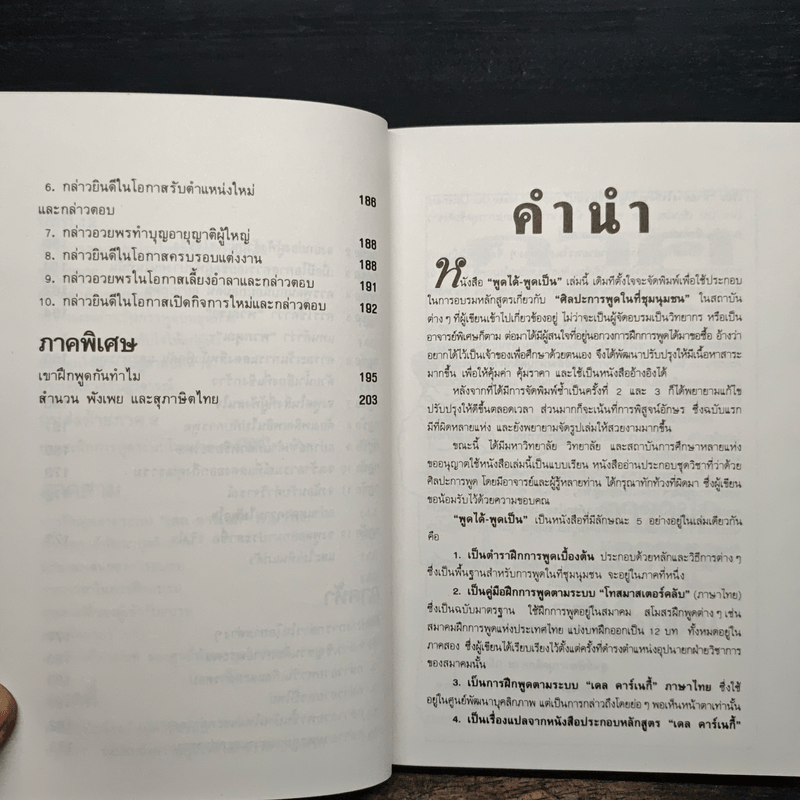 6. กล่าวยินดีในโอกาสรับตำแหน่งใหม่
และกล่าวตอบ 186
7. กล่าวอวยพรทำบุญอายุญาติผู้ใหญ่ 188
8. กล่าวยินดีในโอกาสครบรอบแต่งงาน 188
9. กล่าวอวยพรในโอกาสเลี้ยงอำลาและกล่าวตอบ 191
10. กล่าวยินดีในโอกาสเปิดกิจการใหม่และกล่าวตอบ 192
ภาคพิเศษ
เขาฝึกพูดกันทำไม 195
สำนวน พังเพย และสุภาษิตไทย 203
คำนำ
หนังสือ "พูดได้-พูดเป็น" เล่มนี้ เดิมทีตั้งใจจะจัดพิมพ์เพื่อใช้ประกอบ
ในการอบรมหลักสูตรเกี่ยวกับ "ศิลปะการพูดในที่ชุมนุมชน" ในสถาบัน
ต่างๆ ที่ผู้เขียนเข้าไปเกี่ยวข้องอยู่ ไม่ว่าจะเป็นผู้จัดอบรมเป็นวิทยากร หรือเป็น
อาจารย์พิเศษก็ตาม ต่อมาได้มีผู้สนใจที่อยู่นอกวงการฝึกการพูดได้มาขอซื้อ อ้างว่า
อยากได้ไว้เป็นเจ้าของเพื่อศึกษาด้วยตนเอง จึงได้พัฒนาปรับปรุงให้มีเนื้อหาสาระ
มากขึ้น เพื่อให้คุ้มค่า คุ้มราคา และใช้เป็นหนังสืออ้างอิงได้
หลังจากที่ได้มีการจัดพิมพ์ซ้ำเป็นครั้งที่ 2 และ 3 ก็ได้พยายามแก้ไข
ปรับปรุงให้ดีขึ้นตลอดเวลา ส่วนมากก็จะเน้นที่การพิสูจน์อักษร ซึ่งฉบับแรก
มีที่ผิดหลายแห่ง และยังพยายามจัดรูปเล่มให้สวยงามมากขึ้น
ขณะนี้ ได้มีมหาวิทยาลัย วิทยาลัย และสถาบันการศึกษาหลายแห่ง
ขออนุญาตใช้หนังสือเล่มนี้เป็นแบบเรียน หนังสืออ่านประกอบชุดวิชาที่ว่าด้วย
ศิลปะการพูด โดยมีอาจารย์และผู้รู้หลายท่าน ได้กรุณาทักท้วงที่ผิดมา ซึ่งผู้เขียน
ขอน้อมรับไว้ด้วยความขอบคุณ
"พูดได้-พูดเป็น" เป็นหนังสือที่มีลักษณะ 5 อย่างอยู่ในเล่มเดียวกัน
คือ
1. เป็นตำราฝึกการพูดเบื้องต้น ประกอบด้วยหลักและวิธีการต่างๆ
ซึ่งเป็นพื้นฐานสำหรับการพูดในที่ชุมนุมชน จะอยู่ในภาคที่หนึ่ง
2. เป็นคู่มือฝึกการพูดตามระบบ "โทสมาสเตอร์คลับ" (ภาษาไทย)
ซึ่งเป็นฉบับมาตรฐาน ใช้ฝึกการพูดอยู่ในสมาคม สโมสรฝึกพูดต่างๆ เช่น
สมาคมฝึกการพูดแห่งประเทศไทย แบ่งบทฝึกออกเป็น 12 บท ทั้งหมดอยู่ใน
ภาคสอง ซึ่งผู้เขียนได้เรียบเรียงไว้ตั้งแต่ครั้งที่ดำรงตำแหน่งอุปนายกฝ่ายวิชาการ
ของสมาคมนั้น
3. เป็นการฝึกพูดตามระบบ "เดล คาร์เนกี้" ภาษาไทย ซึ่งใช้
อยู่ในศูนย์พัฒนาบุคลิกภาพ แต่เป็นการกล่าวถึงโดยย่อๆ พอเห็นหน้าตาเท่านั้น
4. เป็นเรื่องแปลจากหนังสือประกอบหลักสูตร "เดล คาร์เนกี้"